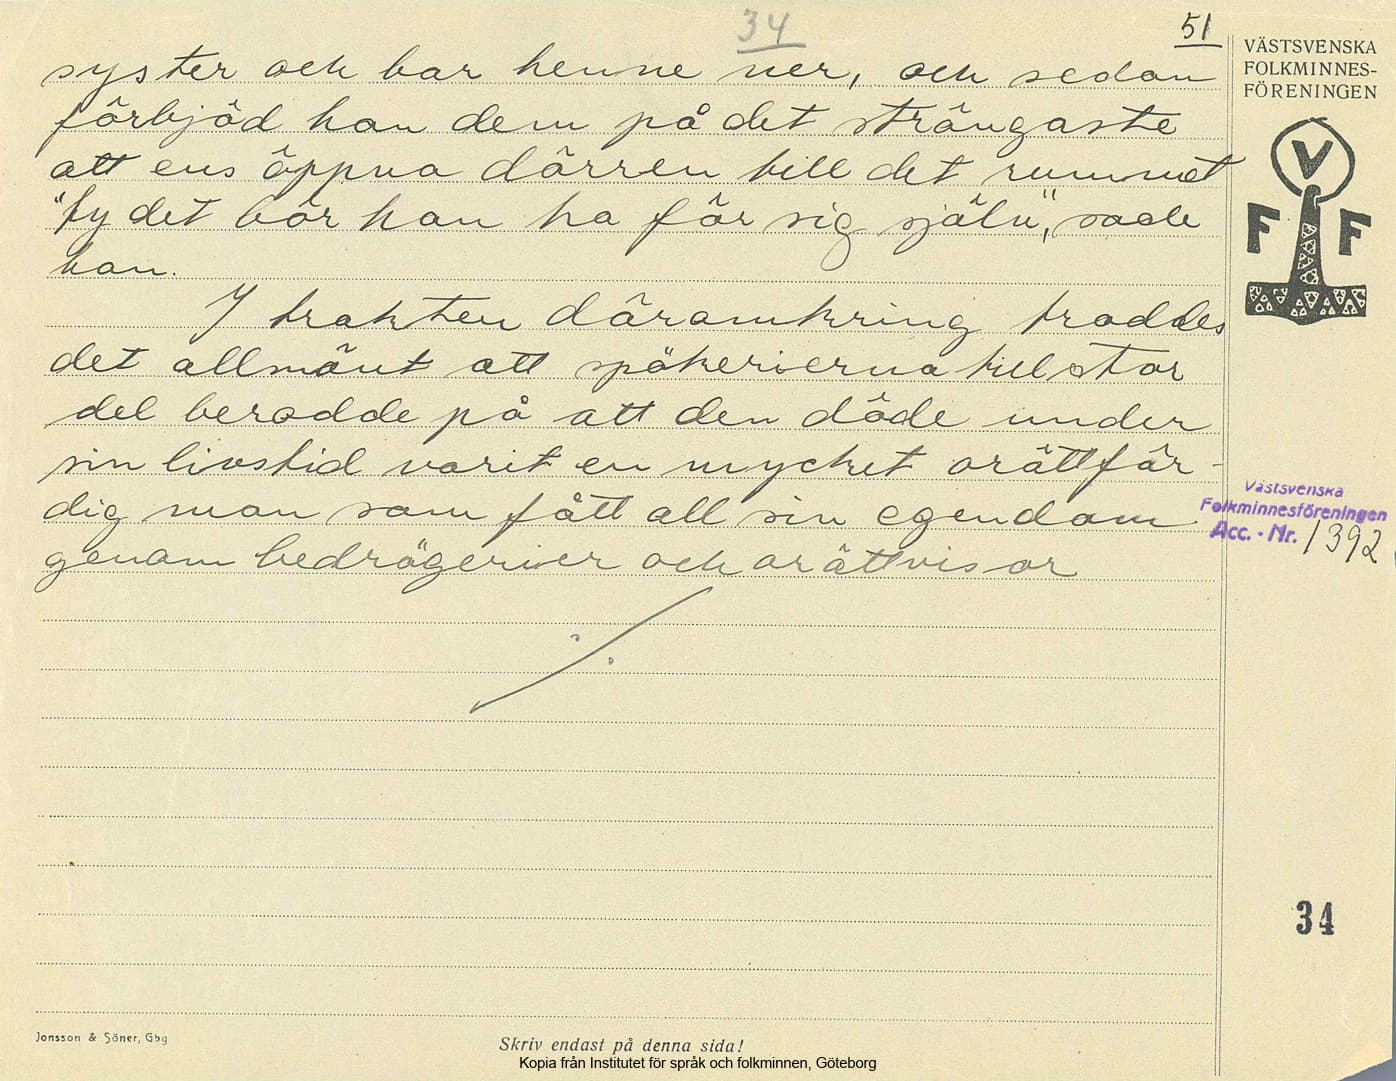 34
51
syster och bar henne ner, och sedan
förbjöd han dem på det strängaste
att ens öppna dörren till det rummet
"ty det bör han ha för sig själv", sade
han.
I trakten däromkring troddes
det allmänt att spökerierna till stor
del berodde på att den döde under
sin livstid varit en mycket orättfär-
dig man som fått all sin egendom
genom bedrägerier och orättvisor
VÄSTSVENSKA
FOLKMINNES-
FÖRENINGEN
V
F F
Västsvenska
Folkminnesföreningen
Acc. - Nr. 1392
34
Jonsson & Söner, Gbg
Skriv endast på denna sida!
Kopia från Institutet för språk och folkminnen, Göteborg